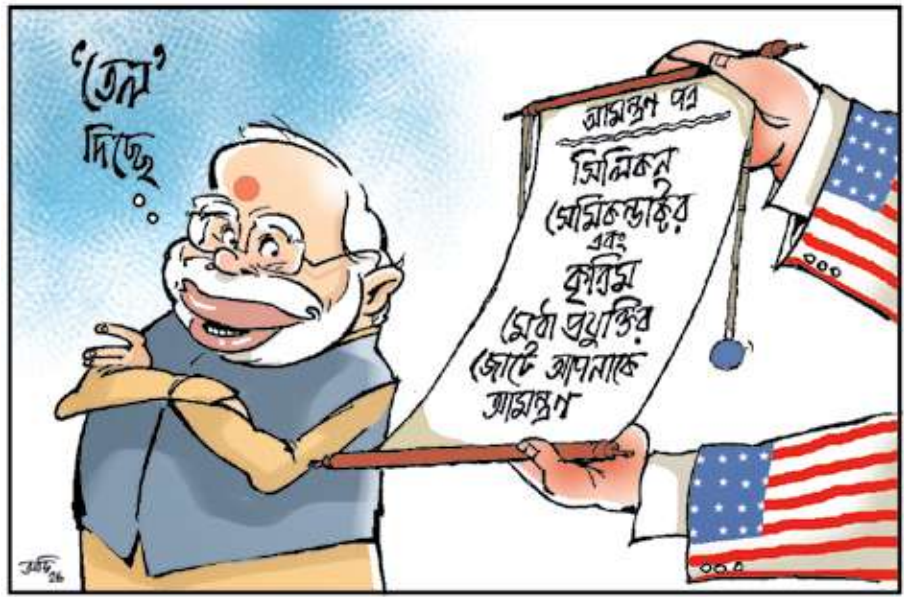 'তেল'
দিচ্ছে
আমন্ত্রণ পত্র
সিলিকন
সেমিকন্ডাক্টর
এবং
কৃত্রিম
মেধা প্রযুক্তির
জোটে আপনাকে
আমন্ত্রণ
26